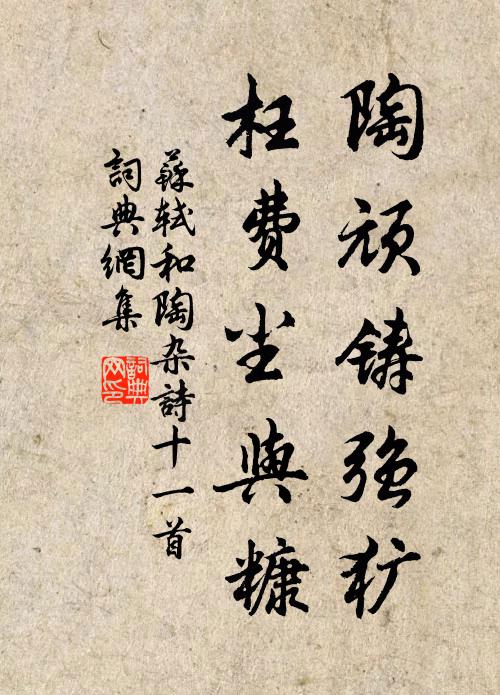 陶顽铸强犷
枉费尘與糠
蘇轼和陶杂詩十一首
詞典網集
詞典
网印